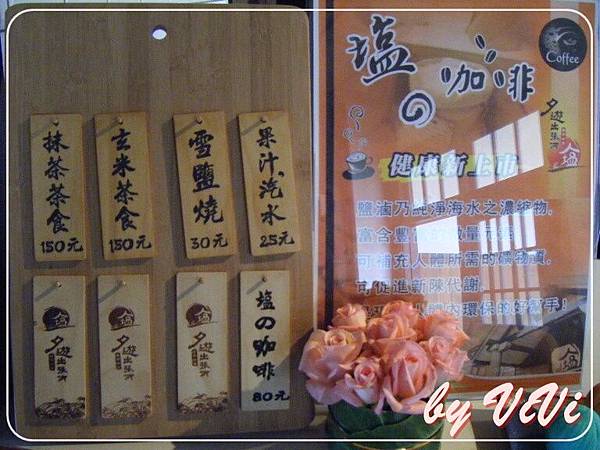 抹茶茶食
150元
玄米茶食
150元
雪鹽燒
30元
果汁汽水
25元
塩の咖啡
80元
夕遊出張所
夕遊出張所
夕遊出張所
塩の咖啡
Coffee
夕遊出張所
健康新上市
鹽滷乃純淨海水之濃縮物,
富含豐
可補充人體所需的礦物質,
可促進新陳代謝,
體內環保的好幫手!
by ViVi